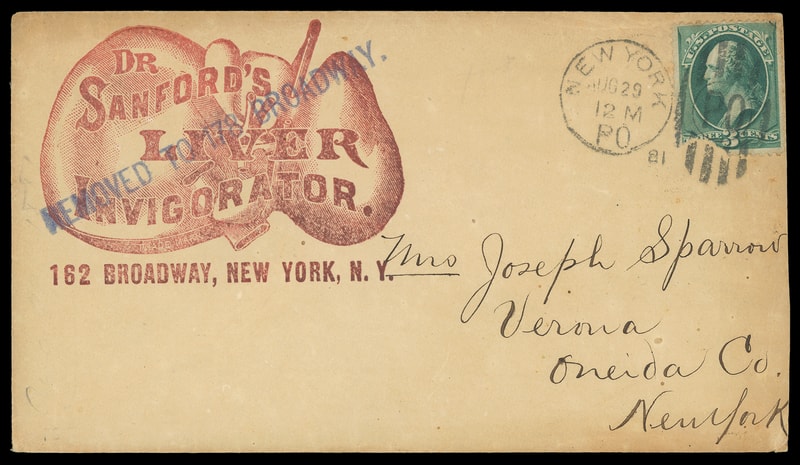 DR
SANFORD'S
LIVER
INVIGORATOR.
REMOVED TO 178 BROADWAY.
162 BROADWAY, NEW YORK, N.Y.
NEW YORK
AUG 29
12 M
PO
81
U.S. POSTAGE
3 CENTS
Mrs Joseph Sparrow
Verona
Oneida Co.
New York